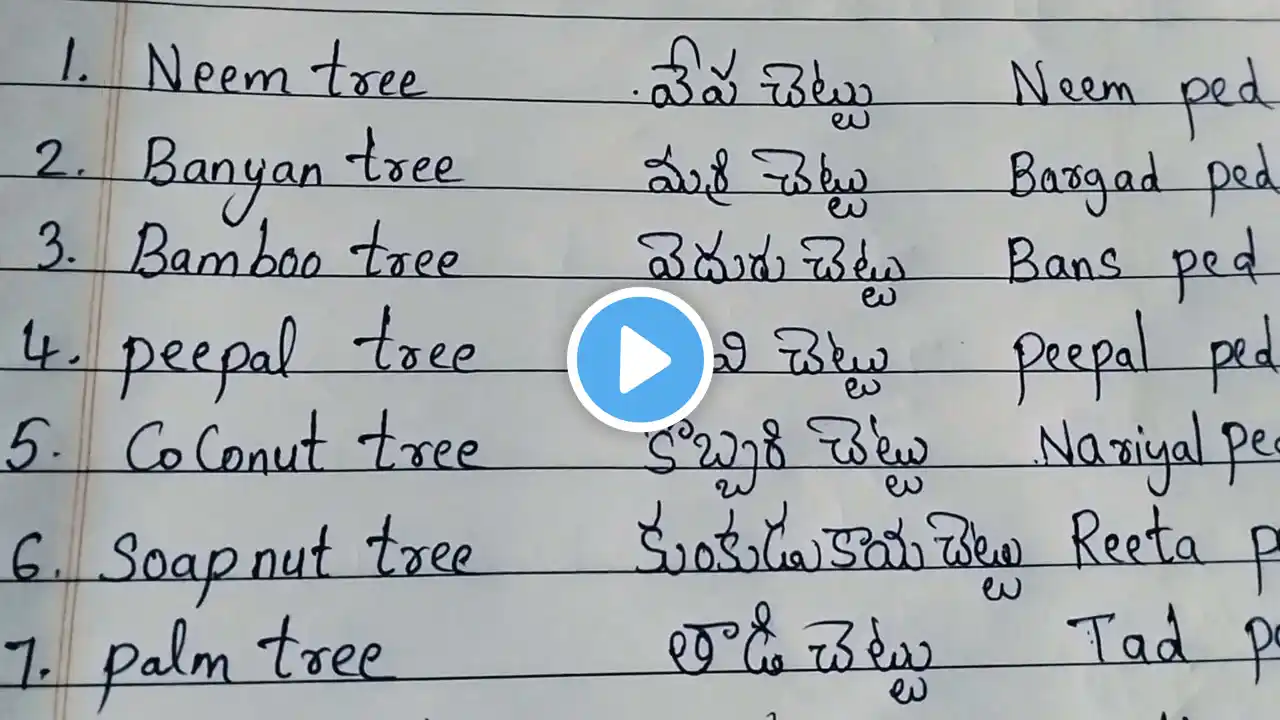 1. Neem tree వేప చెట్టు Neem ped
2. Banyan tree మర్రి చెట్టు Bargad ped
3. Bamboo tree వెదురు చెట్టు Bans ped
4. peepal tree చెట్టు peepal ped
5. CoConut tree కొబ్బరి చెట్టు Nariyal
6. Soapnut tree కుంకుడుకాయ చెట్టు Reeta
7. palm tree తాడి చెట్టు Tad